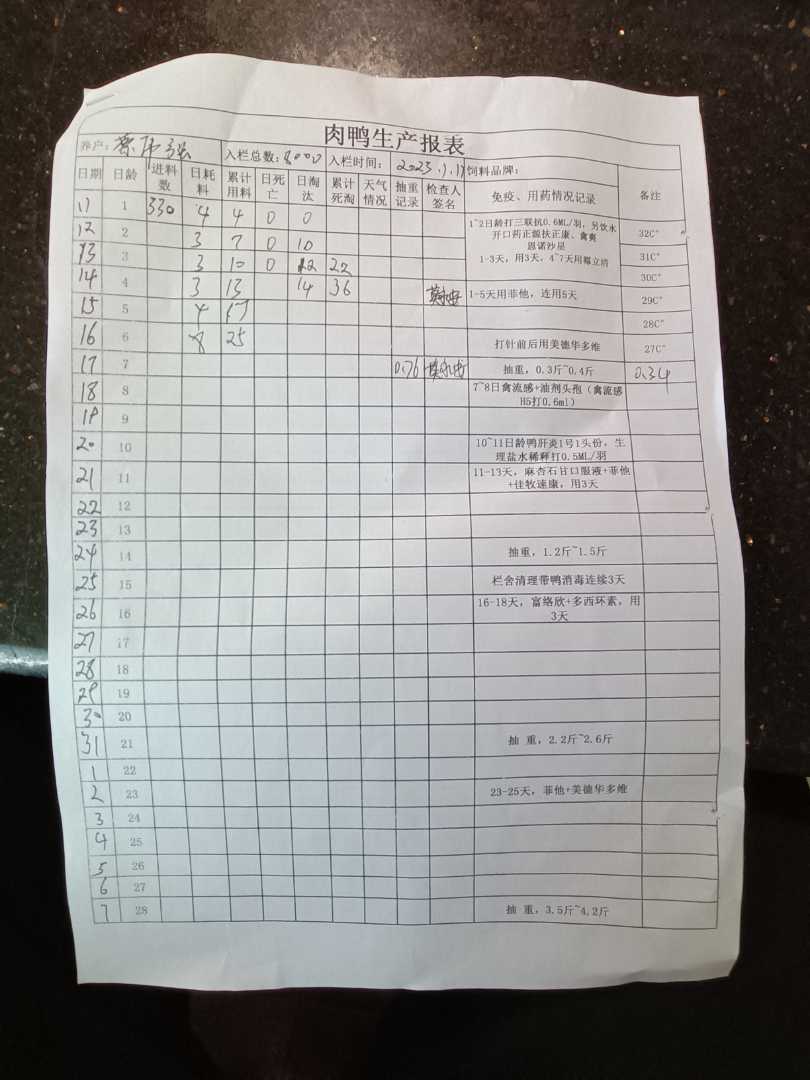 肉鸭生产报表
养户: 入栏总数:8000 入栏时间: 2023.1.11 饲料品牌:
日期 日龄 进料数 日耗料 累计用料 日死亡 日淘汰 累计死淘 天气情况 抽重记录 检查人签名 免疫、用药情况记录 备注
11 1 330 4 4 0 0 1~2日龄打三联抗0.6ML/羽，另饮水
12 2 3 7 0 10 开口药正源扶正康、禽爽 32C°
恩诺沙星
13 3 3 10 0 12 22 1-3天，用3天，4~7天用霉立清 31C°
30C°
14 4 3 13 14 36 1-5天用菲他，连用5天 29C°
15 5 4 17 28C°
16 6 8 25 打针前后用美德华多维 27C°
17 7 0.76 抽重，0.3斤~0.4斤 0.34
18 8 7~8日禽流感+油剂头孢（禽流感
H5打0.6ml）
19 9
20 10 10~11日龄鸭肝炎1号1头份，生
理盐水稀释打0.5ML/羽
21 11 11-13天，麻杏石甘口服液+菲他
+佳牧速康，用3天
22 12
23 13
24 14 抽重，1.2斤~1.5斤
25 15 栏舍清理带鸭消毒连续3天
26 16 16-18天，富络欣+多西环素，用
3天
27 17
28 18
29 19
30 20
31 21 抽 重，2.2斤~2.6斤
1 22
2 23 23-25天，菲他+美德华多维
3 24
4 25
5 26
6 27
7 28 抽 重，3.5斤~4.2斤